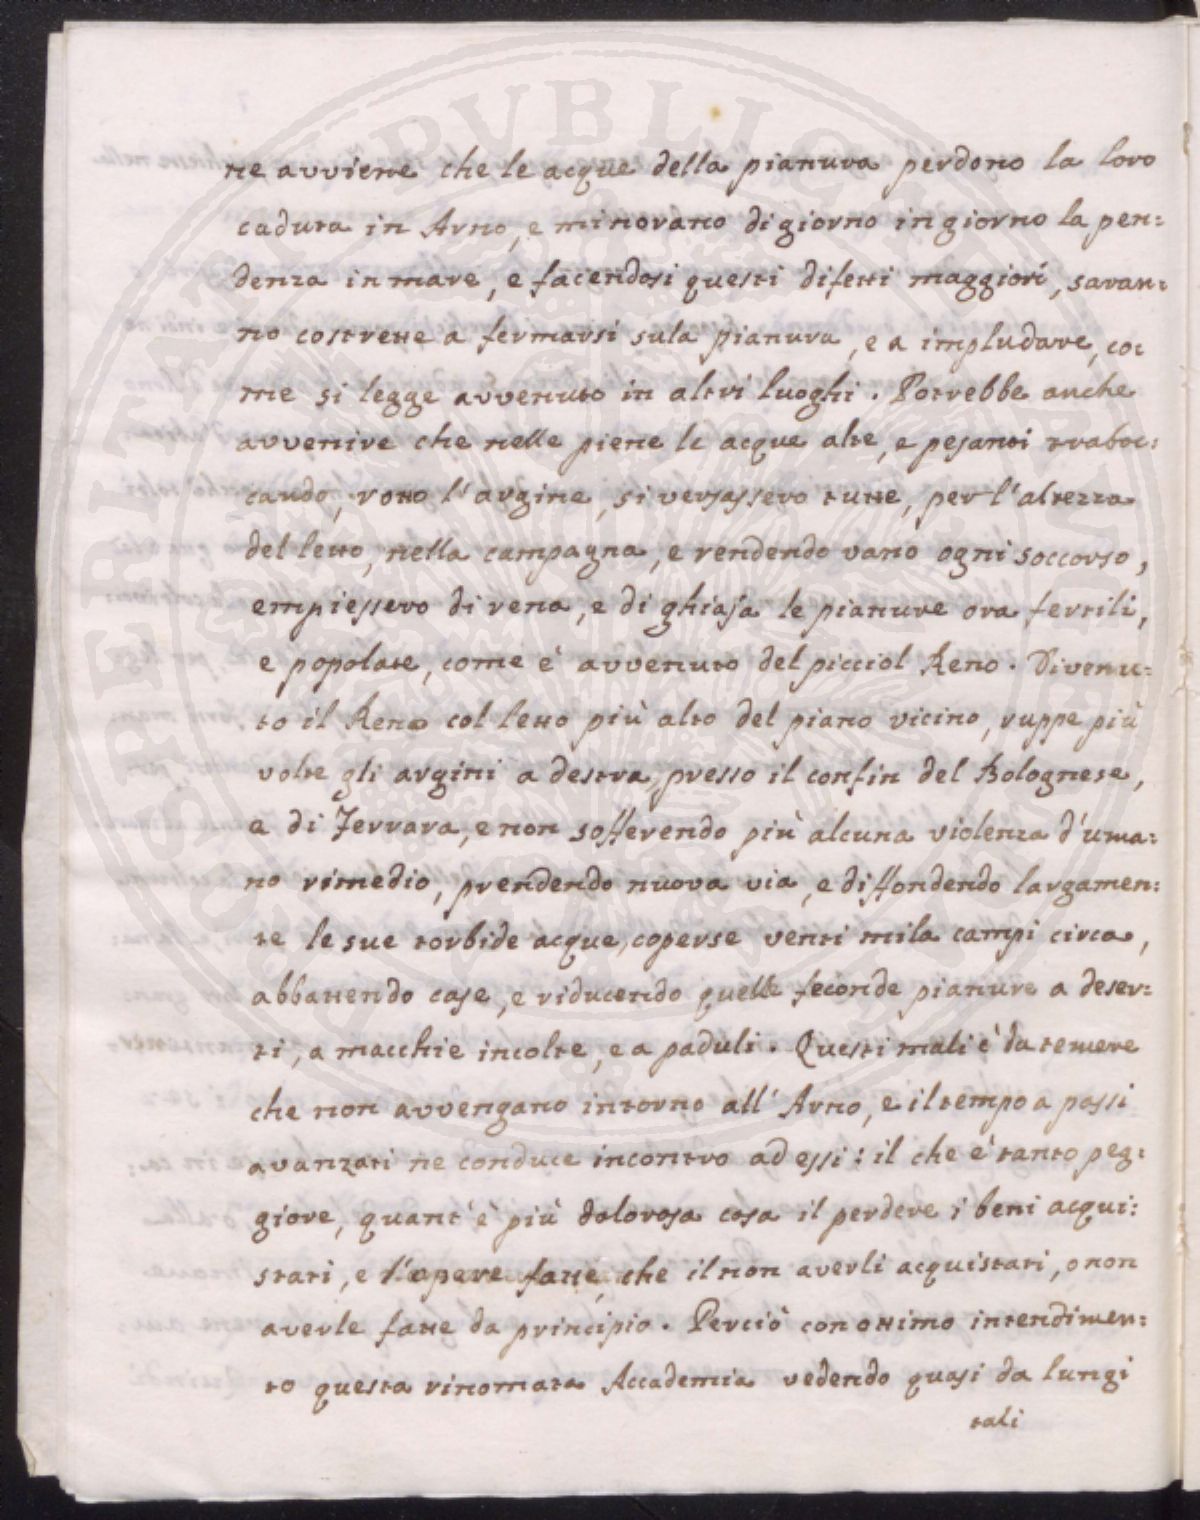 ne avviene che le acque della pianura perdono la loro
caduta in Arno, e minorano di giorno in giorno la pen:
denza in mare, e facendosi questi difetti maggiori, saran:
no costrette a fermarsi sula pianura, e a impludare, co:
me si legge avvenuto in altri luoghi. Potrebbe anche
avvenire che nelle piene le acque alte, e pesanti traboc:
cando, rotto l'argine, si versassero tutte, per l'altezza
del letto, nella campagna, e rendendo vano ogni soccorso,
empiessero di rena, e di ghiaja le pianure ora fertili,
e popolate, come è avvenuto del picciol Reno. Divenu:
to il Reno col letto più alto del piano vicino, ruppe più
volte gli argini a destra, presso il confin del Bolognese,
a di Ferrara, e non sofferendo più alcuna violenza d'uma:
no rimedio, prendendo nuova via, e diffondendo largamen:
te le sue torbide acque, coperse venti mila campi circa,
abbattendo case, e riducendo quelle feconde pianure a deser:
ti, a macchie incolte, e a paduli. Questi mali è da temere
che non avvengano intorno all'Arno, e il tempo a passi
avanzati ne conduce incontro ad essi: il che è tanto peg:
giore, quant'è più dolorosa cosa il perdere i beni acqui:
stati, e l'opere fatte, che il non averli acquistati, o non
averle fatte da principio. Perciò con ottimo intendimen:
to questa rinomata Accademia vedendo quasi da lungi
tali
PROSPERITATI PUBLICAE